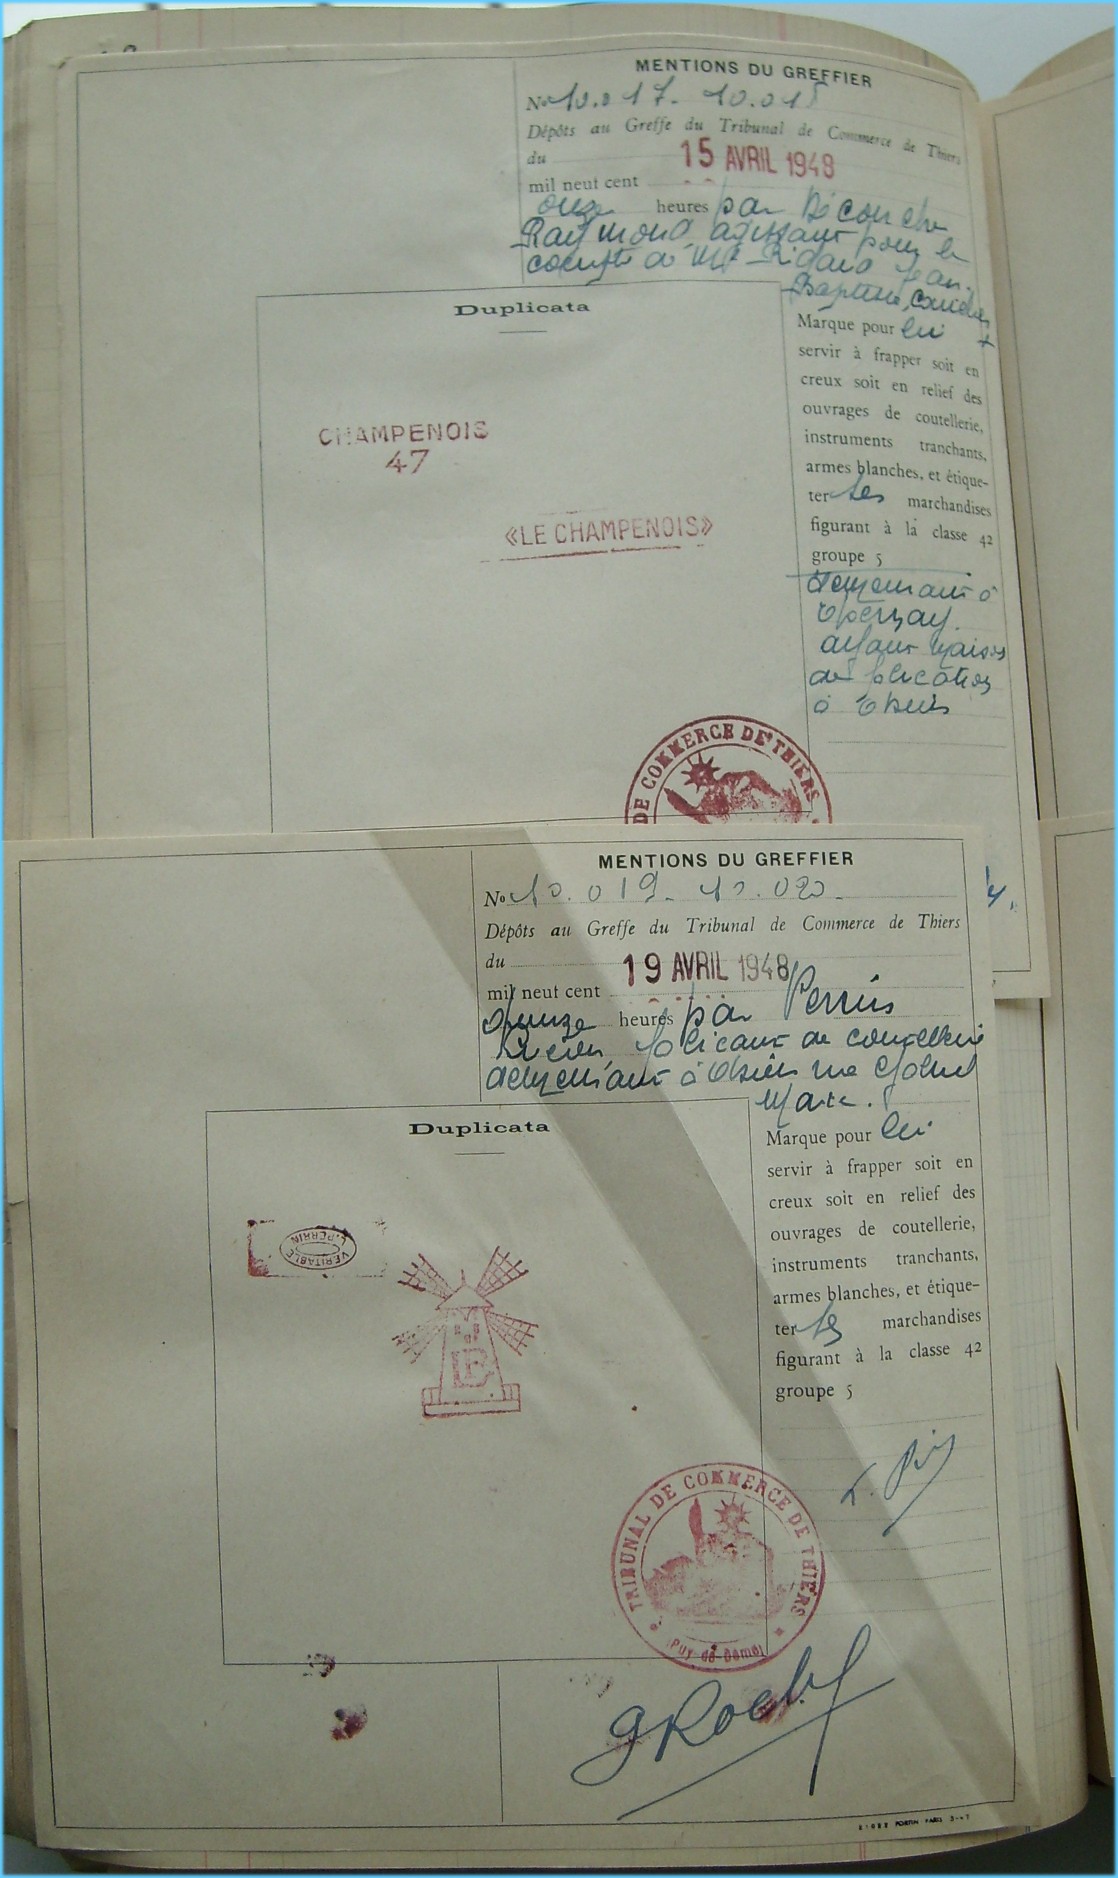 MENTIONS DU GREFFIER
No 10.017. 10.018
Dépôts au Greffe du Tribunal de Commerce de Thiers
du 15 AVRIL 1948
mil neuf cent
onze heures par
Raymond, agissant pour le
compte de Mr Rigaud Jean
Baptiste,
Duplicata
CHAMPENOIS
47
«LE CHAMPENOIS»
Marque pour lui
servir à frapper soit en
creux soit en relief des
ouvrages de coutellerie,
instruments tranchants,
armes blanches, et étique-
ter ses marchandises
figurant à la classe 42
groupe 5
demeurant à
Epernay.
ayant maison
de fabrication
à Thiers
DE COMMERCE DE THIERS
MENTIONS DU GREFFIER
No 10.019. 10.020.
Dépôts au Greffe du Tribunal de Commerce de Thiers
du 19 AVRIL 1948
mil neuf cent
quinze heures par Perrin
Lucien, fabricant de coutellerie
demeurant à Thiers rue
Marx.
Duplicata
VERITABLE
L. PERRIN
P
Marque pour lui
servir à frapper soit en
creux soit en relief des
ouvrages de coutellerie,
instruments tranchants,
armes blanches, et étique-
ter ses marchandises
figurant à la classe 42
groupe 5
TRIBUNAL DE COMMERCE DE THIERS
(Puy-de-Dôme)